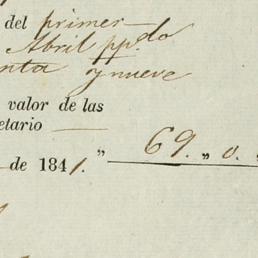 del primer
Abril pp.do
nta y nueve
valor de las
etario
69. „ 0.
de 1841.